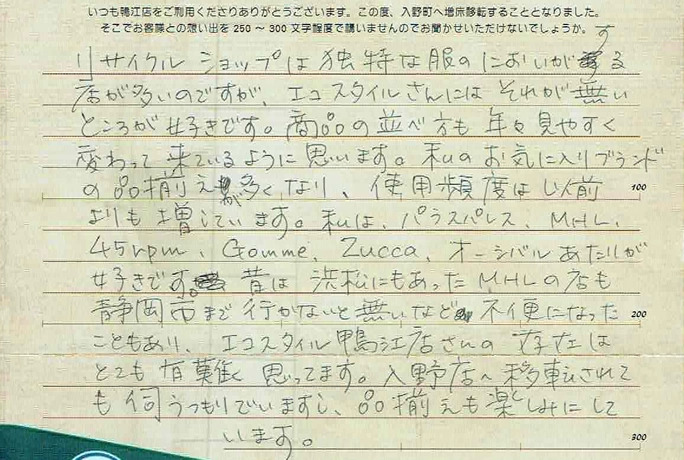 いつも鴨江店をご利用くださりありがとうございます。この度、入野町へ増床移転することとなりました。
そこでお客様との思い出を250～300文字程度で構いませんのでお聞かせいただけないでしょうか。
リサイクルショップは独特な服のにおいがする
店が多いのですが、エコスタイルさんにはそれが無い
ところが好きです。商品の並べ方も年々見やすく
変わって来ているように思います。私のお気に入りブランド
の品揃えが多くなり、使用頻度は以前
100
よりも増しています。私は、パラスパレス、MHL、
45rpm、Gomme、Zucca、オーシバルあたりが
好きです。昔は浜松にもあったMHLの店も
静岡市まで行かないと無いなど不便になった
200
こともあり、エコスタイル鴨江店さんの存在は
とても有難く思ってます。入野店へ移転されて
も伺うつもりでいますし、品揃えも楽しみにして
います。
300